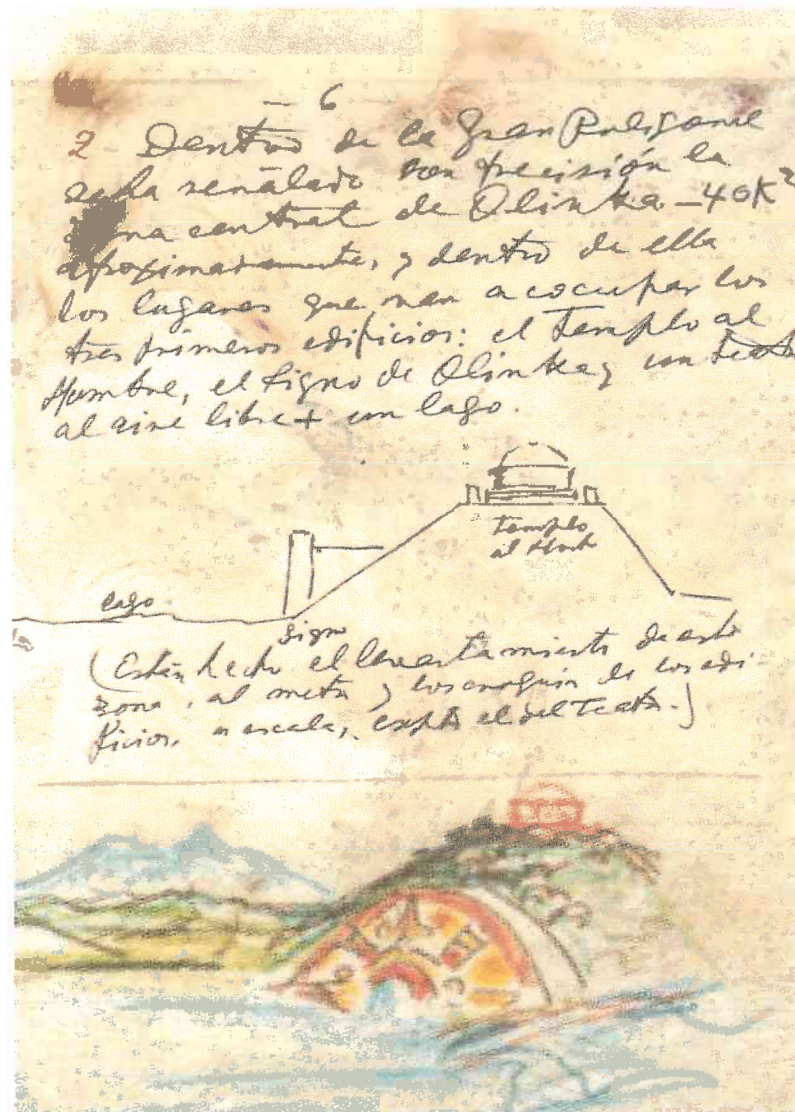 — 6
2 - Dentro de la Gran Poligonal
se ha señalado con precisión la
zona central de Olinka - 40K²
aproximadamente, y dentro de ella
los lugares que van a ocupar los
tres primeros edificios: el Templo al
Hombre, el Signo de Olinka y un Teatro
al aire libre + un lago.
templo
al Homb
lago
signo
(Están hecho el levantamiento de esta
zona, al metro y los croquis de los edi-
ficios, a escala, expto el del Teatro.)